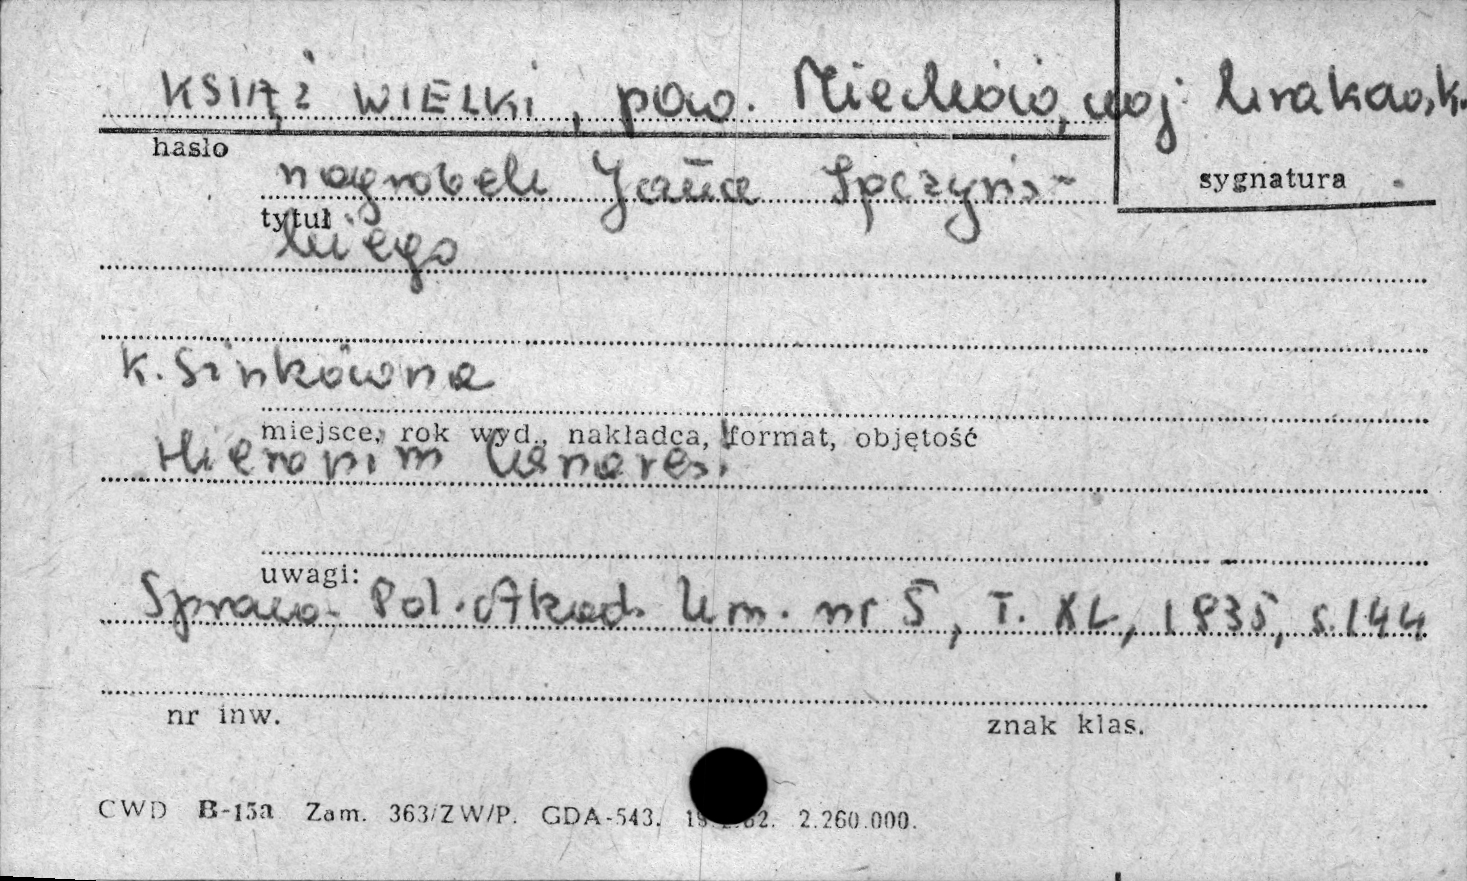 KSIĄŻ WIELKI, pow. Miechów, woj. krakowsk.
hasło
nagrobek Jana Spczyńs-
sygnatura
tytuł
kiego
K. Sinkówna
miejsce, rok wyd., nakładca, format, objętość
Hieronim Canavesi
uwagi:
Spraw. Pol. Akad. Um. nr 5, T. XL, 1935, s. 144
nr inw.
znak klas.
CWD B-15a Zam. 363/ZW/P. GDA-543. 2.260.000.